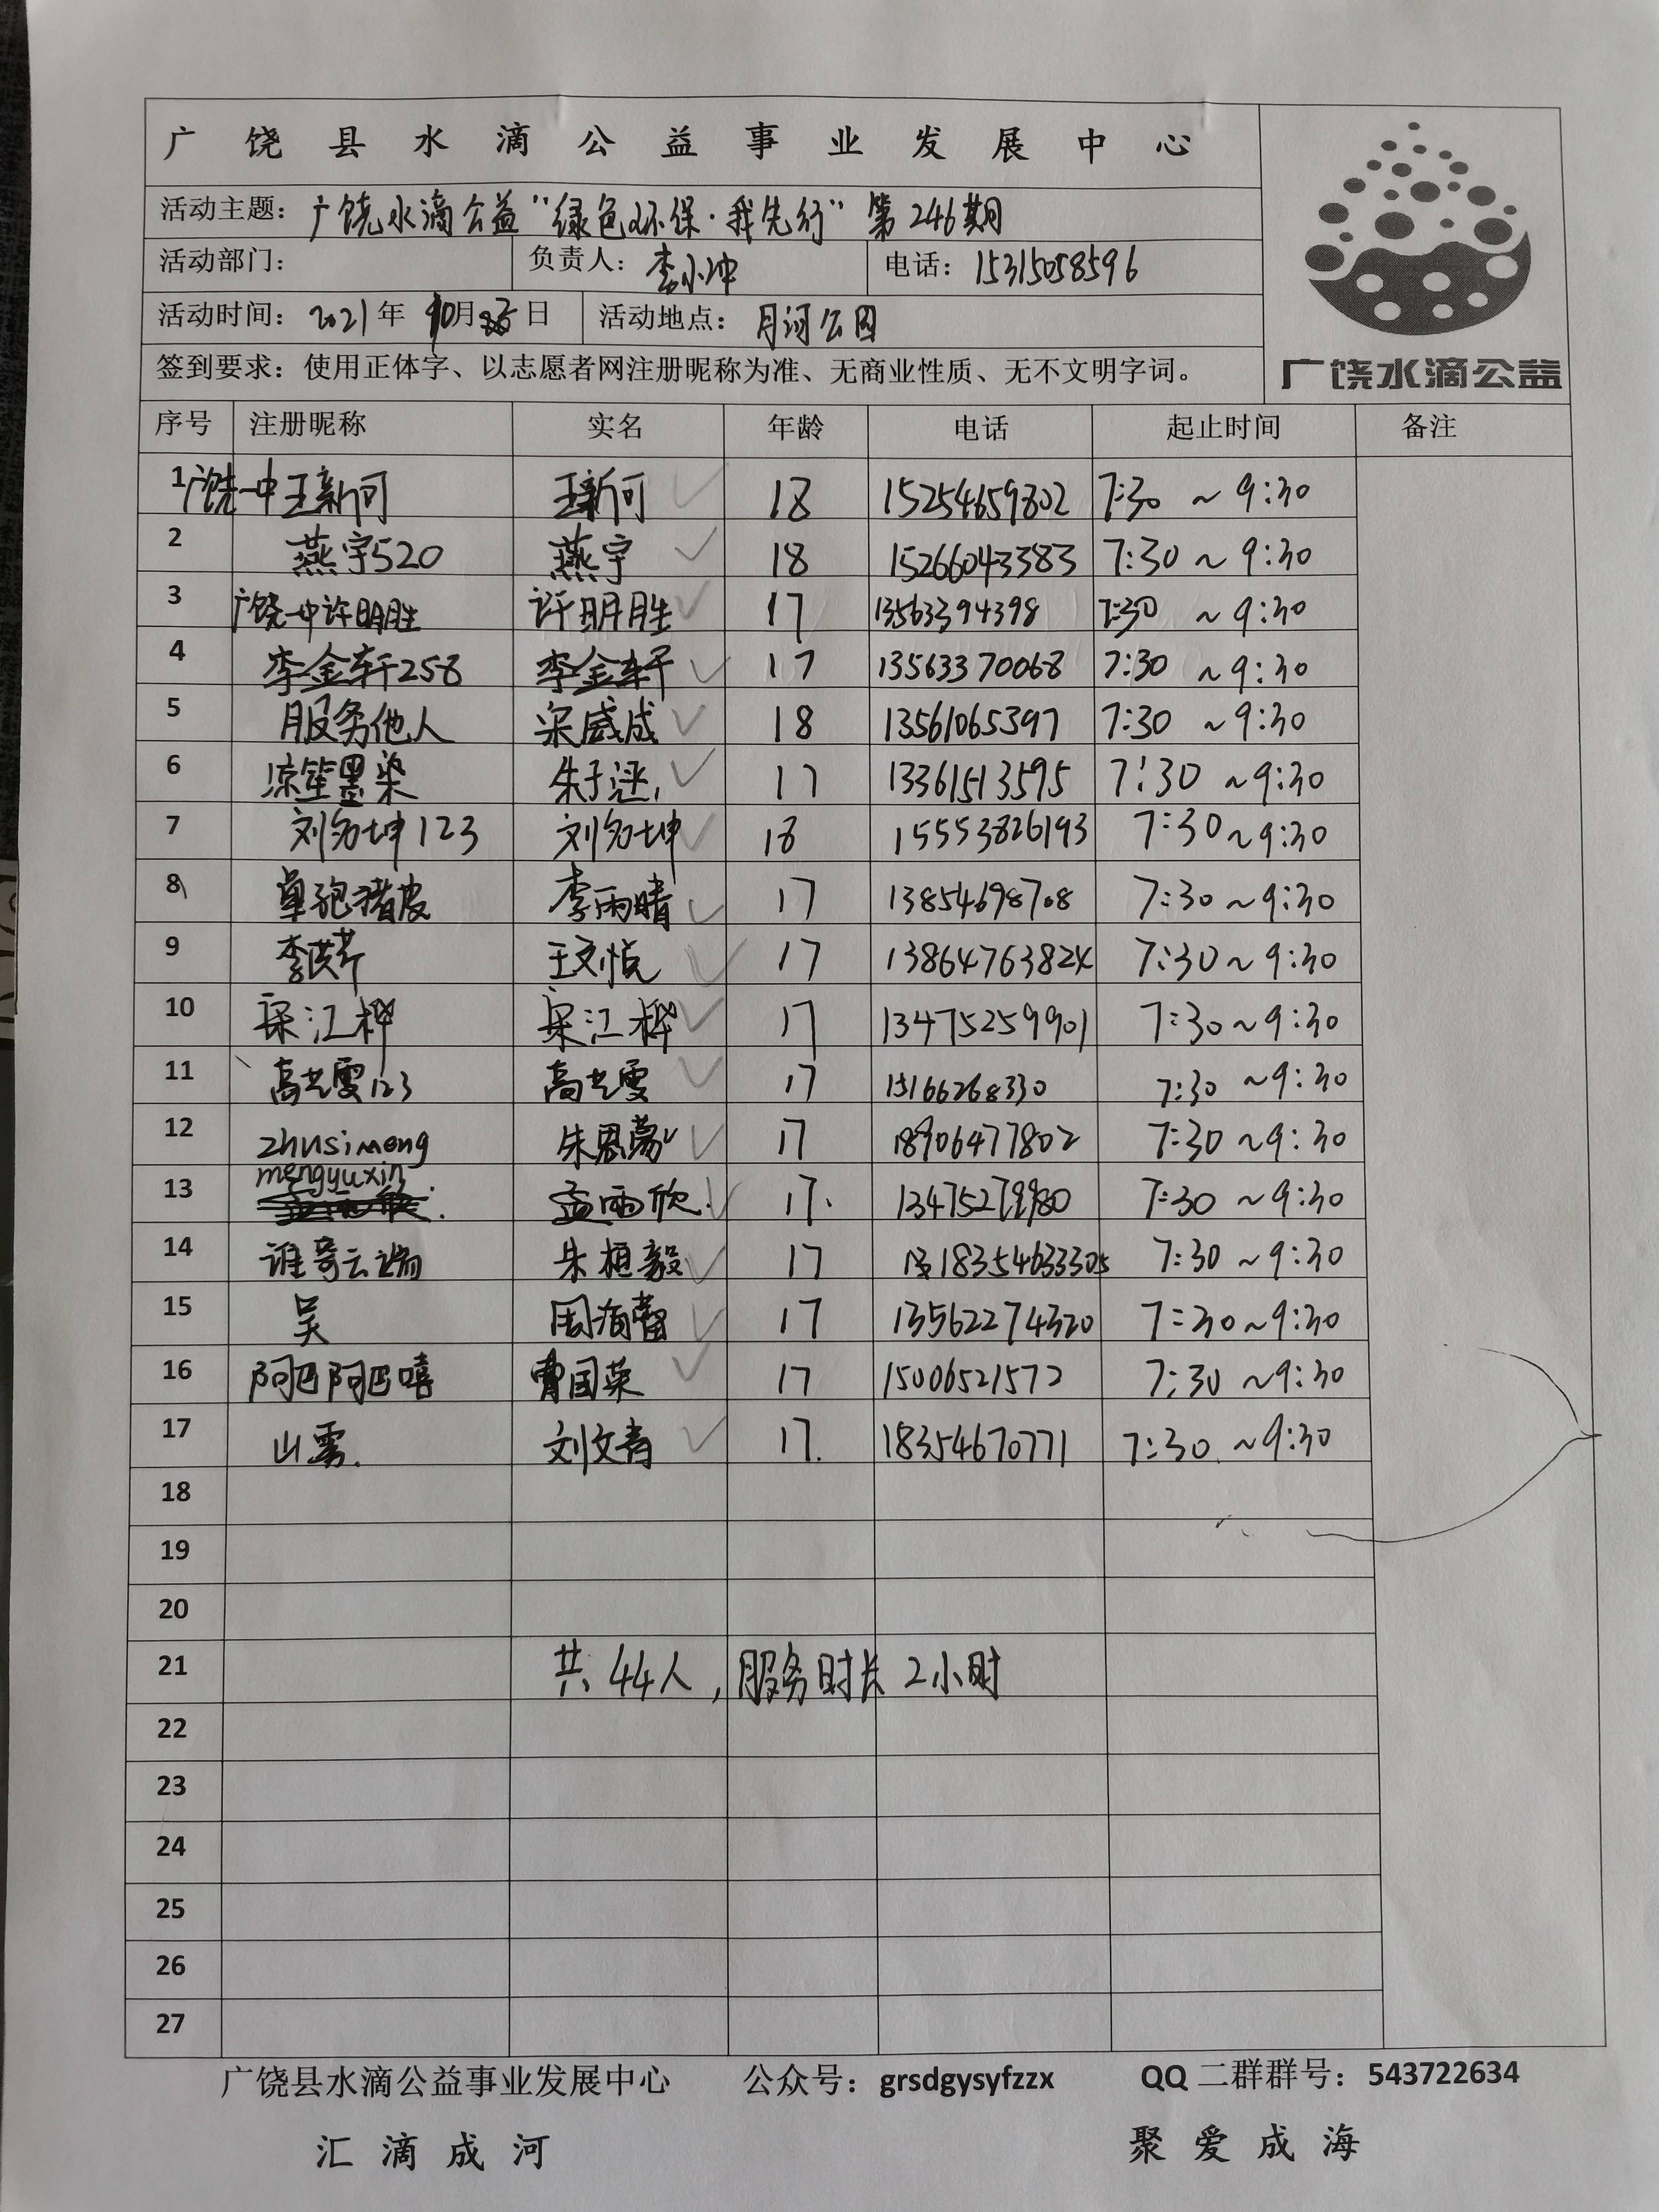 广饶县水滴公益事业发展中心
活动主题：广饶水滴公益"绿色环保·我先行"第246期
活动部门： 负责人：李小冲 电话：15315058596
活动时间：2021年10月 日 活动地点：月河公园
签到要求：使用正体字、以志愿者网注册昵称为准、无商业性质、无不文明字词。
广饶水滴公益
序号 注册昵称 实名 年龄 电话 起止时间 备注
1 广饶一中王新河 王新河 18 15254659802 7:30 ~ 9:30
2 燕宇520 燕宇 18 15266043383 7:30 ~ 9:30
3 广饶一中许明胜 许明胜 17 13563394398 7:30 ~ 9:30
4 李金轩258 李金轩 17 13563370068 7:30 ~ 9:30
5 服务他人 宋威成 18 13561065397 7:30 ~ 9:30
6 凉笙墨染 朱子涵 17 13361513595 7:30 ~ 9:30
7 刘名坤123 刘名坤 18 15553826193 7:30 ~ 9:30
8 李雨晴 17 13854698708 7:30 ~ 9:30
9 王文悦 17 13864763824 7:30 ~ 9:30
10 宋江桦 宋江桦 17 13475259901 7:30 ~ 9:30
11 高艺雯123 高艺雯 17 15166268330 7:30 ~ 9:30
12 zhusimeng 朱思蒙 17 18906477802 7:30 ~ 9:30
13 mengyuxin 孟雨欣 17 7:30 ~ 9:30
14 谁寄云端 朱桓毅 17 18354633305 7:30 ~ 9:30
15 吴 17 13562274320 7:30 ~ 9:30
16 阿巴阿巴嘻 曹国荣 17 15006521572 7:30 ~ 9:30
17 山雾. 刘文青 17. 18354670771 7:30 ~ 9:30
18
19
20
21 共44人，服务时长2小时
22
23
24
25
26
27
广饶县水滴公益事业发展中心 公众号：grsdgysyfzzx QQ二群群号：543722634
汇滴成河 聚爱成海